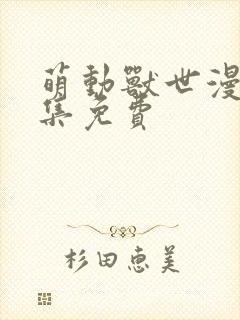 萌動獸世漫
集免費
杉田惠美